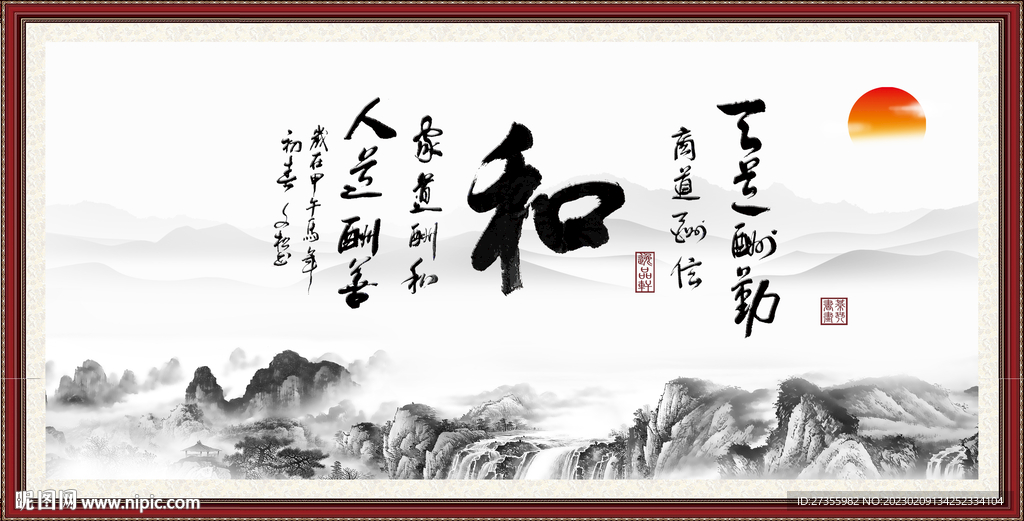 天道酬勤
商道酬信
和
家道酬和
人道酬善
歲在甲午馬年
初春
逸品軒
書畫
昵图网 www.nipic.com
ID:27355982 NO:20230209134252334104